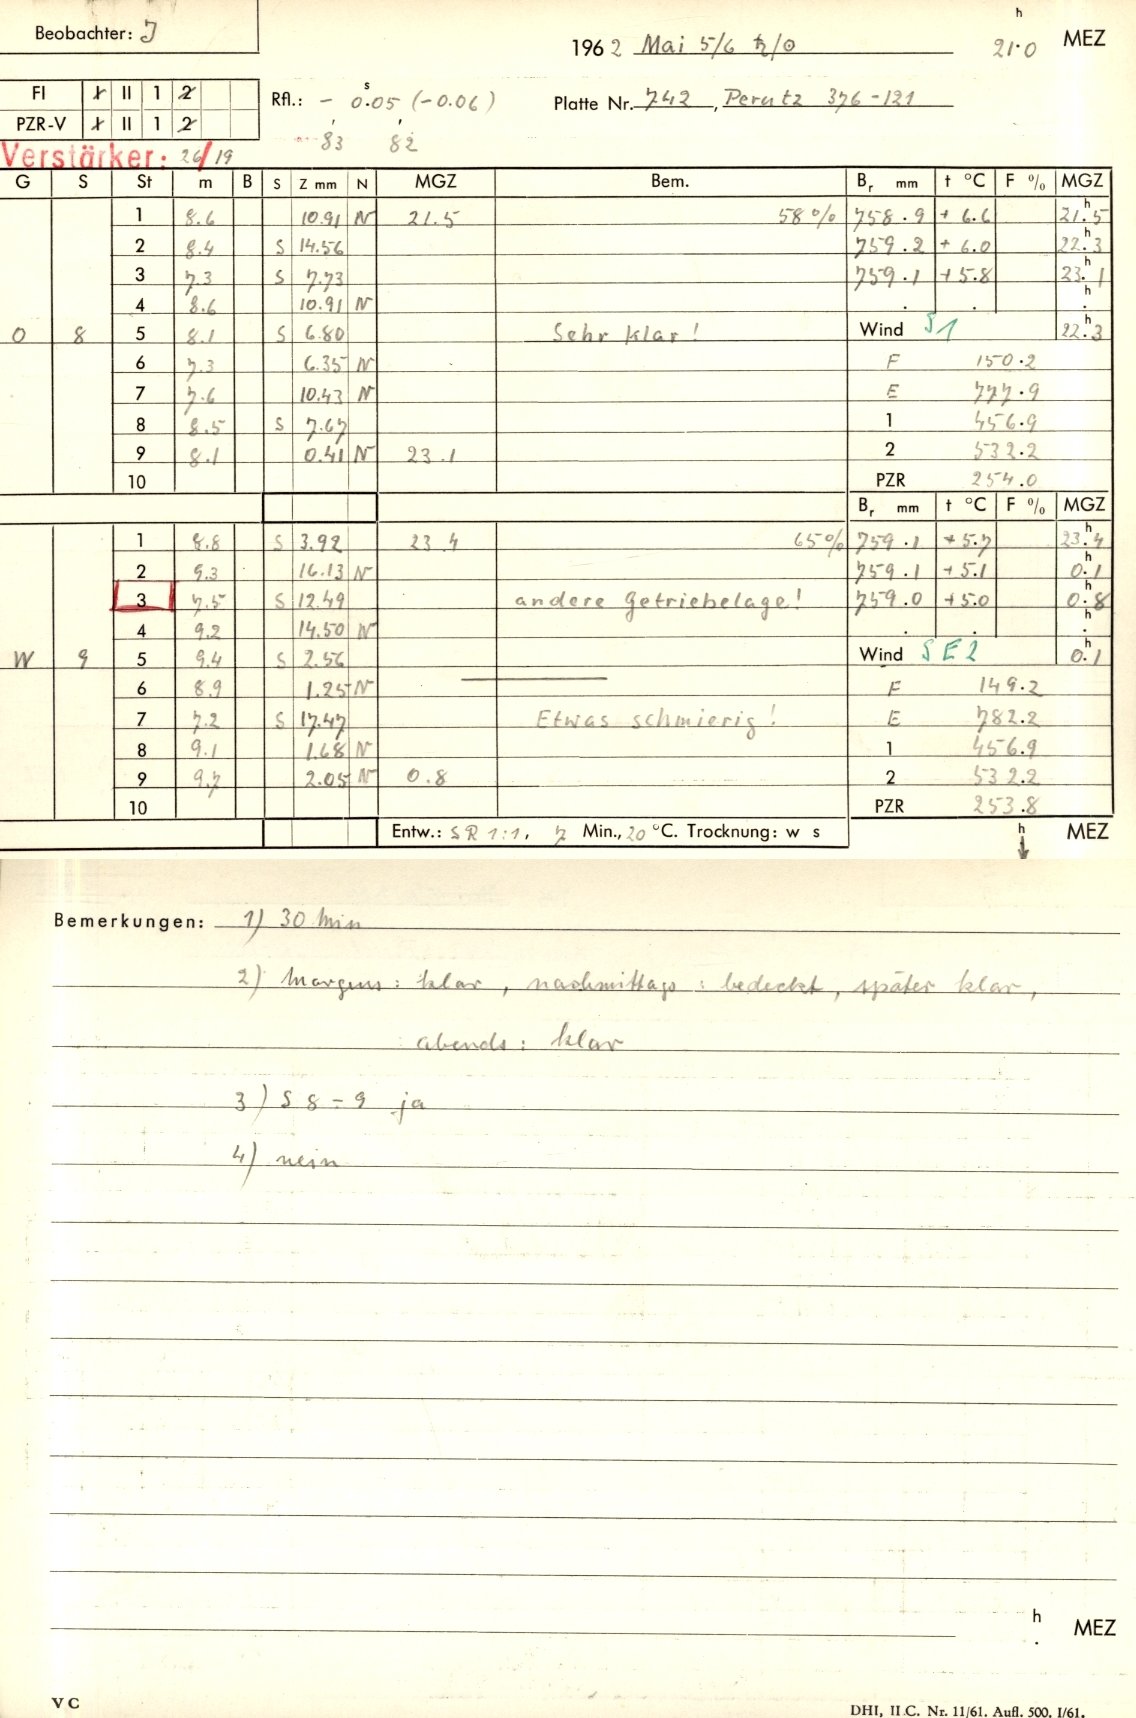 Beobachter: J
1962 Mai 5/6 ♄/☉ 21.0 h MEZ
FI I II 1 2
PZR-V I II 1 2
Rfl.: - 0.05 s (-0.06)
83 82
Platte Nr. 742, Perutz 376-121
Verstärker: 26/19
G S St m B S Z mm N MGZ Bem. Br mm t °C F % MGZ
1 8.6 10.91 N 21.5 58% 758.9 +6.6 21.5 h
2 8.4 S 14.56 759.2 +6.0 22.3 h
3 7.3 S 7.73 759.1 +5.8 23.1 h
4 8.6 10.91 N . . h .
O 8 5 8.1 S 6.80 Sehr klar! Wind S1 22.3 h
6 7.3 6.35 N F 150.2
7 7.6 10.43 N E 777.9
8 8.5 S 7.67 1 456.9
9 8.1 0.41 N 23.1 2 532.2
10 PZR 254.0
Br mm t °C F % MGZ
1 8.8 S 3.92 23 4 65% 759.1 +5.7 23.4 h
2 9.3 16.13 N 759.1 +5.1 0.1 h
3 7.5 S 12.49 andere Getriebelage! 759.0 +5.0 0.8 h
4 9.2 14.50 N . . h .
W 9 5 9.4 S 2.56 Wind SE2 0.1 h
6 8.9 1.25 N F 149.2
7 7.2 S 17.47 Etwas schmierig! E 782.2
8 9.1 1.68 N 1 456.9
9 9.7 2.05 N 0.8 2 532.2
10 PZR 253.8
Entw.: SR 1:1, 7 Min., 20 °C. Trocknung: w s h MEZ
Bemerkungen: 1) 30 Min
2) Morgens: klar, nachmittags: bedeckt, später klar,
abends: klar
3) S 8-9 ja
4) nein
h . MEZ
V C
DHI, II C. Nr. 11/61. Aufl. 500. I/61.